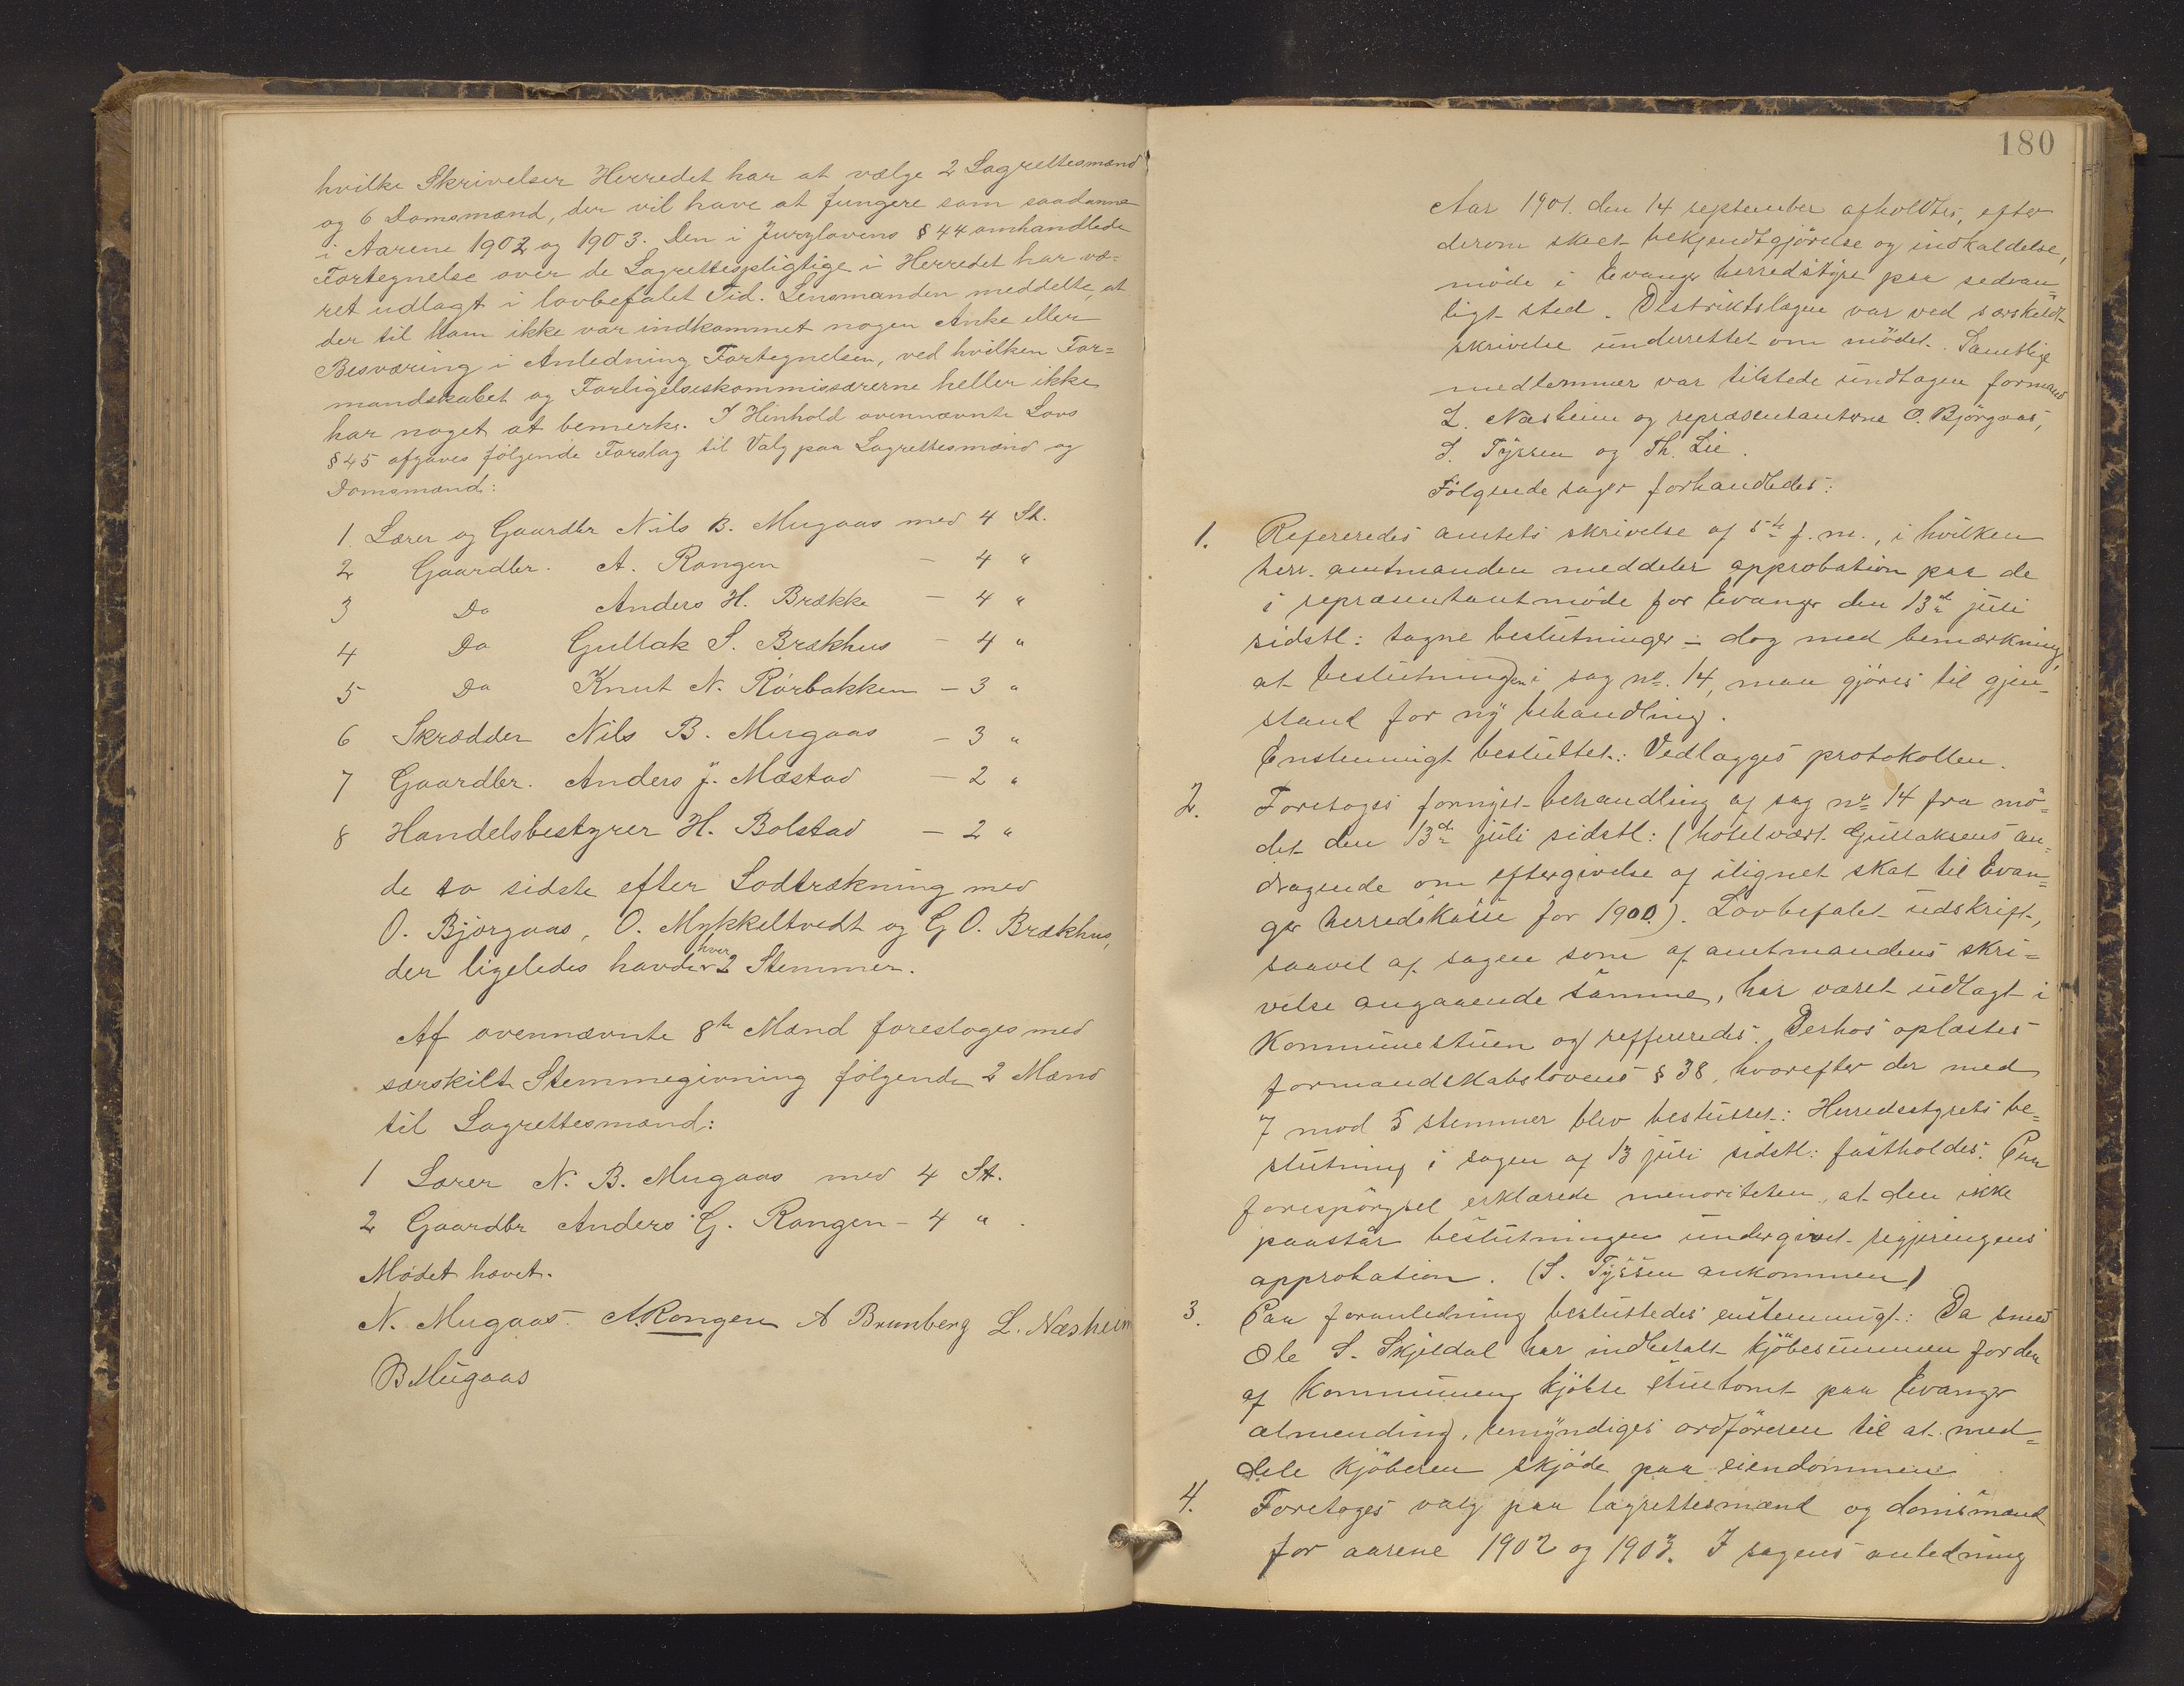 hvilke Skrivelser Herredet har at vælge 2 Lagrettesmænd
og 6 Domsmænd, der vil have at fungere som saadanne
i Aarene 1902 og 1903. Den i Jurylovens § 44 omhandlede
Fortegnelse over de Lagrettespligtige i Herredet har væ=
ret udlagt i lovbefalet Tid. Lensmanden meddelte, at
der til ham ikke var indkommet nogen Anke eller
Besværing i Anledning Fortegnelsen, ved hvilken For=
mandskabet og Forligelseskommissærerne heller ikke
har noget at bemerke. I Hinhold ovennævnte Lovs
§ 45 afgaves følgende Forslag til Valg paa Lagrettesmænd og
Domsmænd:
1 Lærer og Gaardbr Nils B. Mugaas med 4 St.
2 Gaardbr. A. Rongen — 4 "
3 Do Anders H. Brække — 4 "
4 Do Gullak S. Brækhus — 4 "
5 Do Knut N. Rørbakken — 3 "
6 Skrædder Nils B. Mugaas — 3 "
7 Gaardbr. Anders J. Mæstad — 2 "
8 Handelsbestyrer H. Bolstad — 2 "
de to sidste efter Lodtrækning med
O. Bjørgaas, O. Mykkeltvedt og G. O. Brækhus,
der ligeledes havde hver 2 Stemmer.
Af ovennævnte 8te Mænd foresloges med
særskilt Stemmegivning følgende 2 Mænd
til Lagrettesmænd:
1 Lærer N. B. Mugaas med 4 St.
2 Gaardbr Anders G. Rongen — 4 " .
Mødet hævet.
N. Mugaas. A. Rongen A Brunberg L. Næsheim
B Mugaas
180
Aar 1901. den 14 september afholdtes, efter
derom skeet bekjendtgjørelse og indkaldelse,
møde i Evanger herredstyre paa sedvan=
ligt sted. Distriktslægen var ved særskildt
skrivelse underrettet om mødet. Samtlige
medlemmer var tilstede undtagen formand
L. Næsheim og repræsentanterne O. Bjørgaas,
S. Tyssen og Th. Lie.
Følgende sager forhandledes:
1. Refereredes amtets skrivelse af 5te f. m., i hvilken
herr. amtmanden meddeler approbation paa de
i repræsentantmøde for Evanger den 13de juli
sidstl: tagne beslutninger — dog med bemærkning,
at beslutningen i sag no. 14, maa gjøres til gjen=
stand for ny behandling.
Enstemmigt besluttet: Vedlægges protokollen.
2. Foretoges fornyet behandling af sag no 14 fra mø=
det den 13de juli sidstl: (hotelvært Gullaksens an=
dragende om eftergivelse af ilignet skat til Evan=
ger herredskasse for 1900). Lovbefalet udskrift,
saavel af sagen som af amtmandens skri=
velse angaaende samme, har været udlagt i
Kommunestuen og reffereredes. Derhos oplæstes
formandskabslovens § 38, hvorefter der med
7 mod 5 stemmer blev besluttet: Herredsstyrets be=
slutning i sagen af 13 juli sidstl: fastholdes. Paa
forespørgsel erklærede menoriteten, at den ikke
paastår beslutningen undergivet regjeringens
approbation. (S. Tyssen ankommen)
3. Paa foranledning besluttedes enstemmigt: Da smed
Ole S. Skjeldal har indbetalt kjøbesummen for den
af Kommunen kjøbte stuetomt paa Evanger
almending, bemyndiges ordføreren til at med=
dele kjøberen skjøde paa eiendommen
4. Foretoges valg paa lagrettesmænd og domsmænd
for aarene 1902 og 1903. I sagens anledning